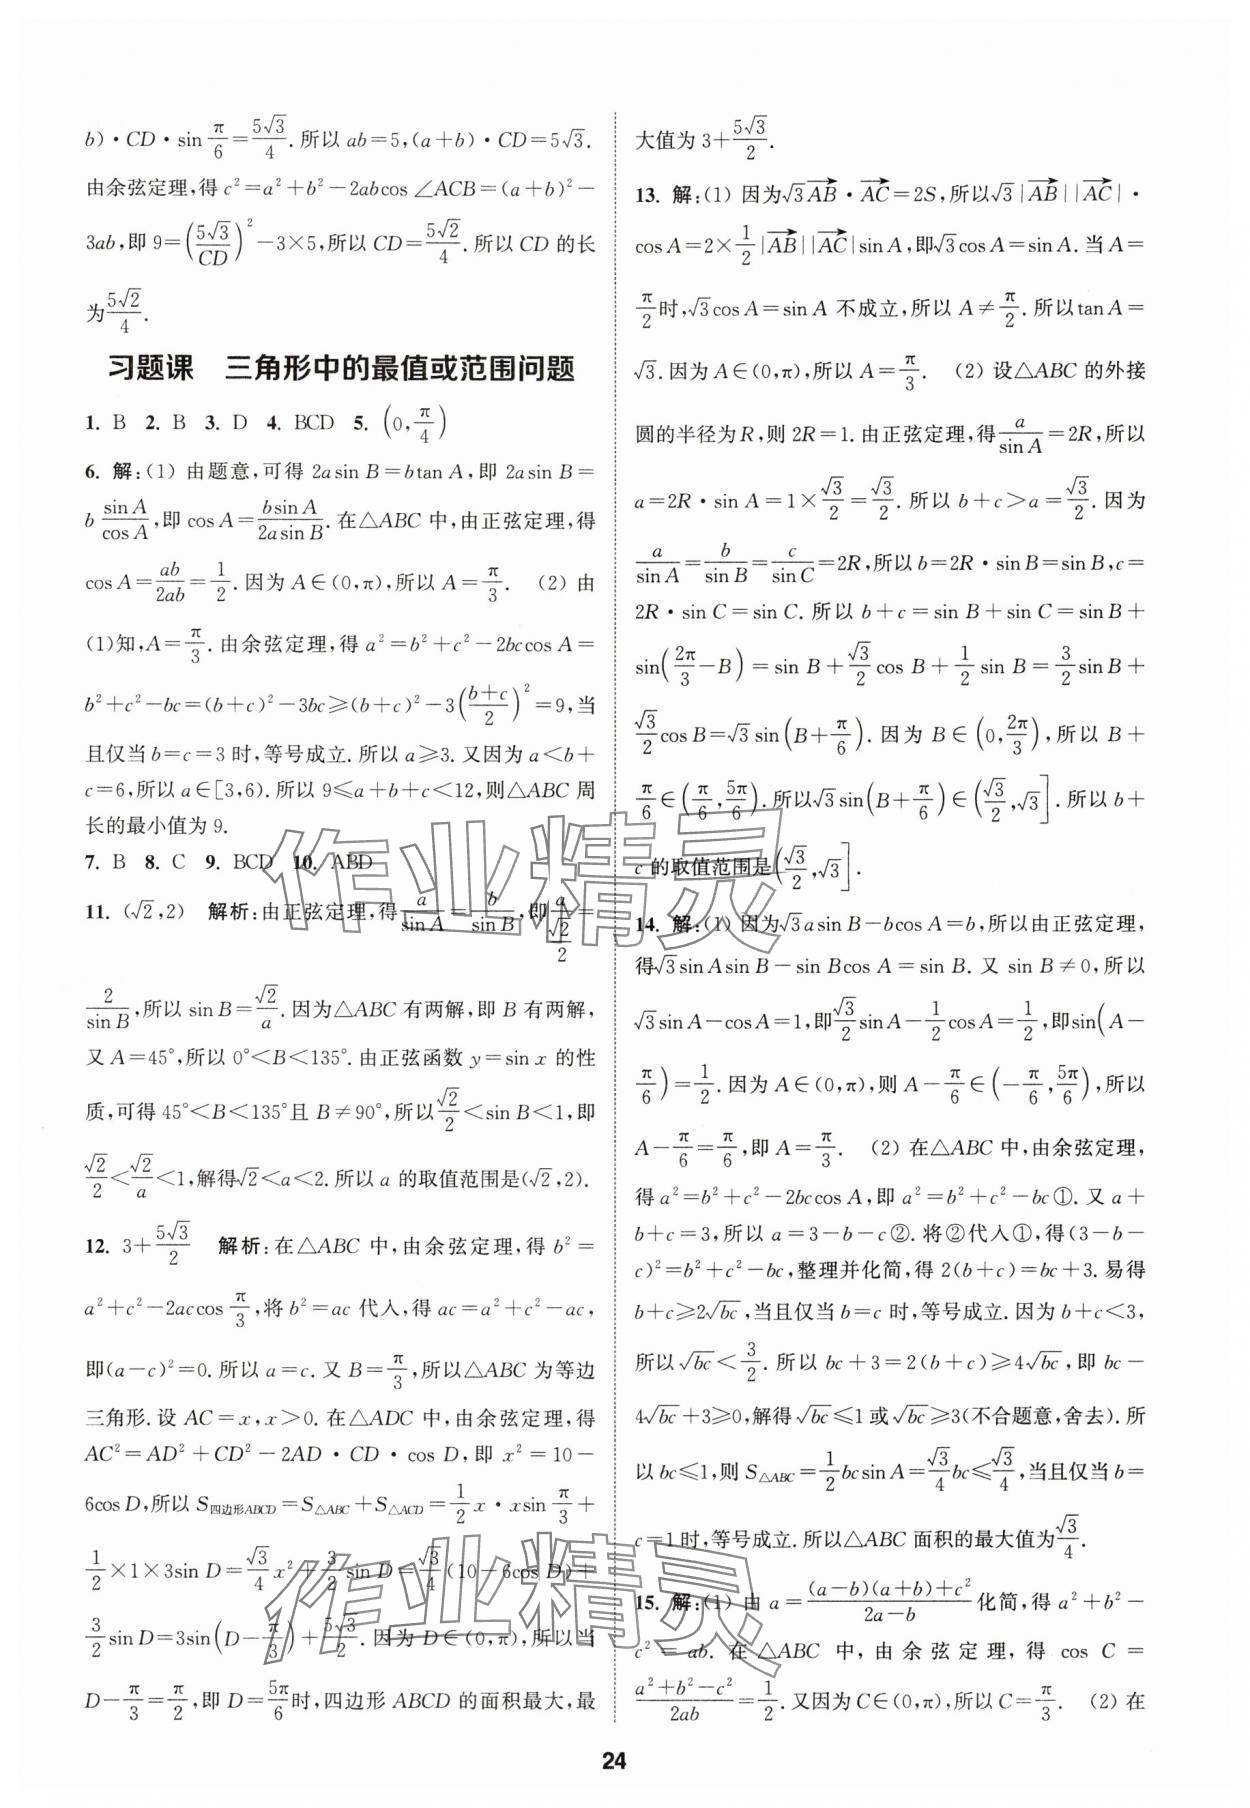 b)·CD·sin π/6=5√3/4.所以 ab=5,(a+b)·CD=5√3.
由余弦定理,得 c²=a²+b²-2abcos∠ACB=(a+b)²-
3ab,即 9=(5√3/CD)²-3×5,所以 CD=5√2/4.所以 CD 的长
为5√2/4.
习题课 三角形中的最值或范围问题
1. B 2. B 3. D 4. BCD 5. (0,π/4)
6. 解:(1) 由题意,可得 2asin B=btan A,即 2asin B=
b sin A/cos A,即 cos A=bsin A/2asin B.在△ABC 中,由正弦定理,得
cos A=ab/2ab=1/2.因为 A∈(0,π),所以 A=π/3. (2) 由
(1)知,A=π/3.由余弦定理,得 a²=b²+c²-2bccos A=
b²+c²-bc=(b+c)²-3bc≥(b+c)²-3((b+c)/2)²=9,当
且仅当 b=c=3 时,等号成立.所以 a≥3.又因为 a<b+
c=6,所以 a∈[3,6).所以 9≤a+b+c<12,则△ABC 周
长的最小值为 9.
7. B 8. C 9. BCD 10. ABD
11. (√2,2) 解析:由正弦定理,得a/sin A=b/sin B,即a/(√2/2)=
2/sin B,所以 sin B=√2/a.因为△ABC 有两解,即 B 有两解,
又 A=45°,所以 0°<B<135°.由正弦函数 y=sin x 的性
质,可得 45°<B<135°且 B≠90°,所以√2/2<sin B<1,即
√2/2<√2/a<1,解得√2<a<2.所以 a 的取值范围是(√2,2).
12. 3+5√3/2 解析:在△ABC 中,由余弦定理,得 b²=
a²+c²-2accos π/3,将 b²=ac 代入,得 ac=a²+c²-ac,
即(a-c)²=0.所以 a=c.又 B=π/3,所以△ABC 为等边
三角形.设 AC=x,x>0.在△ADC 中,由余弦定理,得
AC²=AD²+CD²-2AD·CD·cos D,即 x²=10-
6cos D,所以 S四边形ABCD=S△ABC+S△ACD=1/2 x·xsin π/3+
1/2×1×3sin D=√3/4 x²+3/2 sin D=√3/4(10-6cos D)+
3/2 sin D=3sin(D-π/3)+5√3/2.因为 D∈(0,π),所以当
D-π/3=π/2,即 D=5π/6时,四边形 ABCD 的面积最大,最
大值为 3+5√3/2.
13. 解:(1) 因为√3AB→·AC→=2S,所以√3|AB→||AC→|·
cos A=2×1/2|AB→||AC→|sin A,即√3cos A=sin A.当 A=
π/2时,√3cos A=sin A 不成立,所以 A≠π/2.所以tan A=
√3.因为 A∈(0,π),所以 A=π/3. (2) 设△ABC 的外接
圆的半径为 R,则 2R=1.由正弦定理,得a/sin A=2R,所以
a=2R·sin A=1×√3/2=√3/2.所以 b+c>a=√3/2.因为
a/sin A=b/sin B=c/sin C=2R,所以 b=2R·sin B=sin B,c=
2R·sin C=sin C.所以 b+c=sin B+sin C=sin B+
sin(2π/3-B)=sin B+√3/2 cos B+1/2 sin B=3/2 sin B+
√3/2 cos B=√3sin(B+π/6).因为 B∈(0,2π/3),所以 B+
π/6∈(π/6,5π/6).所以√3sin(B+π/6)∈(√3/2,√3].所以 b+
c 的取值范围是(√3/2,√3].
14. 解:(1) 因为√3asin B-bcos A=b,所以由正弦定理,
得√3sin Asin B-sin Bcos A=sin B.又 sin B≠0,所以
√3sin A-cos A=1,即√3/2 sin A-1/2 cos A=1/2,即sin(A-
π/6)=1/2.因为 A∈(0,π),则 A-π/6∈(-π/6,5π/6),所以
A-π/6=π/6,即 A=π/3. (2) 在△ABC 中,由余弦定理,
得 a²=b²+c²-2bccos A,即 a²=b²+c²-bc①.又 a+
b+c=3,所以 a=3-b-c②.将②代入①,得(3-b-
c)²=b²+c²-bc,整理并化简,得 2(b+c)=bc+3.易得
b+c≥2√bc,当且仅当 b=c 时,等号成立.因为 b+c<3,
所以√bc<3/2.所以 bc+3=2(b+c)≥4√bc,即 bc-
4√bc+3≥0,解得√bc≤1 或√bc≥3(不合题意,舍去).所
以 bc≤1,则 S△ABC=1/2 bcsin A=√3/4 bc≤√3/4,当且仅当 b=
c=1 时,等号成立.所以△ABC 面积的最大值为√3/4.
15. 解:(1) 由 a=((a-b)(a+b)+c²)/(2a-b)化简,得 a²+b²-
c²=ab.在△ABC 中,由余弦定理,得 cos C=
(a²+b²-c²)/2ab=1/2.又因为 C∈(0,π),所以 C=π/3. (2) 在
24
作业精灵
作业精灵